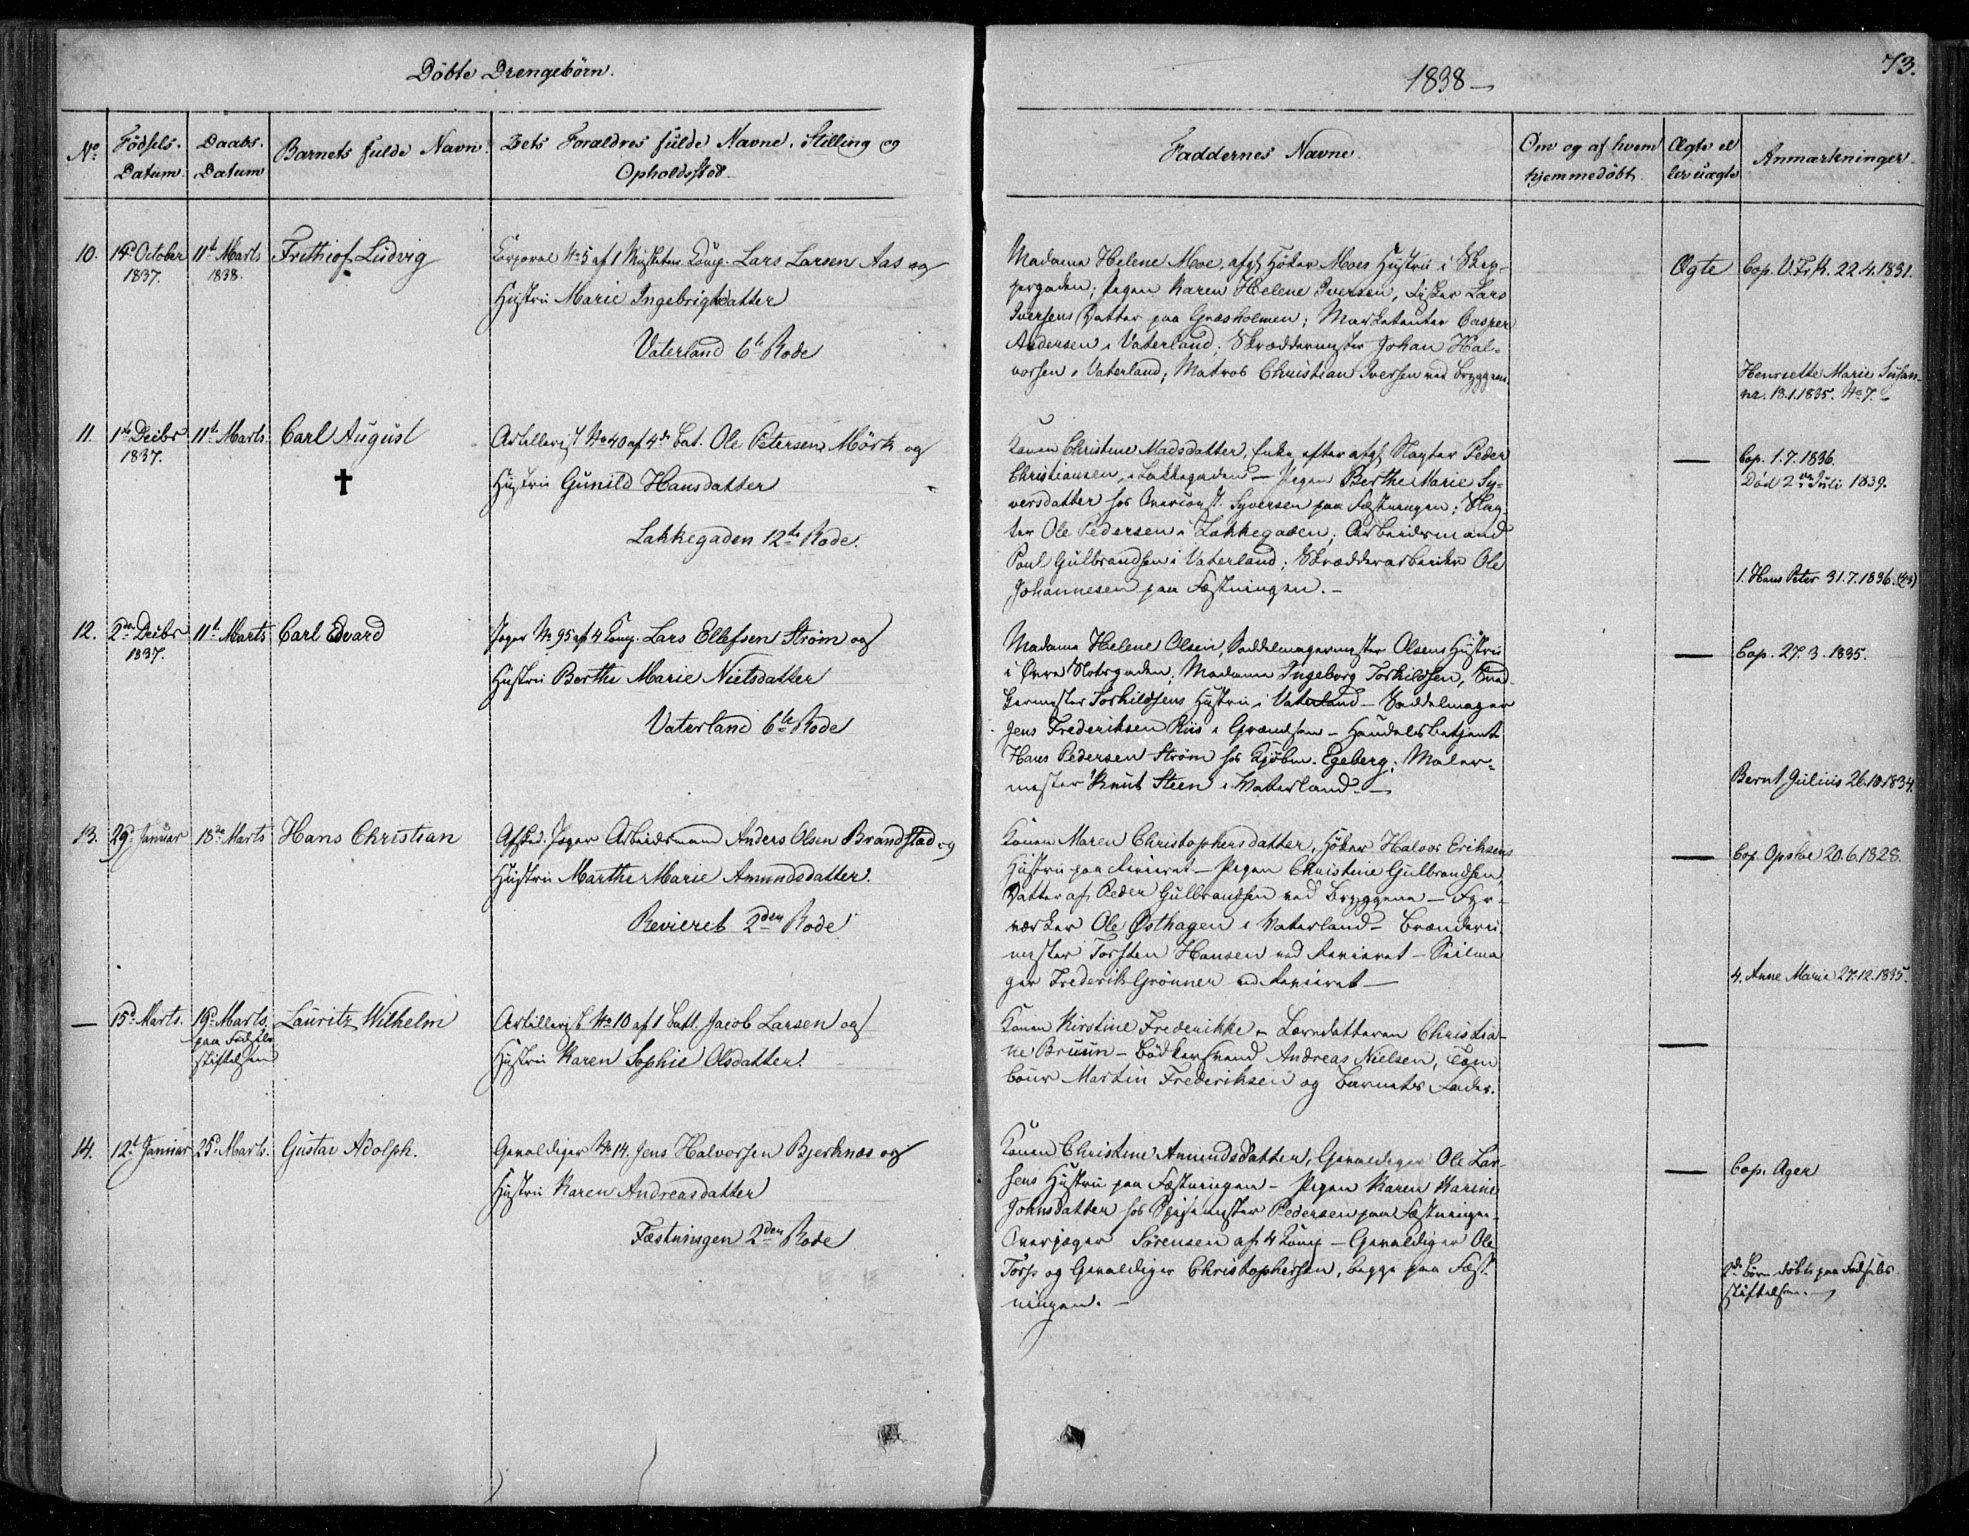 Döbte Drengebörn.
1838 —
73.
No
Födsels-Datum.
Daabs-Datum
Barnets fulde Navn.
Dets Forældres fulde Navne, Stilling og Opholdssted.
Faddernes Navne.
Om og af hvem hjemmedöbt.
Ægte eller uægte
Anmærkninger.
10. 14d October 1837. 11t Marts 1838. Frithiof Ludvig
Corporal No 5 af 1 Musketeer Comp. Lars Larsen Aas og
Hustru Marie Ingebrigtsdatter
Vaterland 6te Rode
Madame Helene Moe, afg. Höker Moes Hustru i Skip-
pergaden; Pigen Karen Helene Iversen, Fisker Lars
Iversens Datter paa Græsholmen; Marketenter Casper
Andersen i Vaterland; Skræddermester Johan Hal-
vorsen i Vaterland; Matros Christian Iversen ved Bryggen.
Ægte
Cop. V. Frk. 22.4.1831.
Henriette Marie Susan-
na. 13.1.1835. No 7.
11. 1ste Decbr 1837. 11t Marts. Carl August
✝
Artillerist No 40 af 4de Bat. Ole Petersen Mörk og
Hustru Gunild Hansdatter
Lakkegaden 12te Rode.
Konen Christine Madsdatter, Enke efter afg. Slagter Peder
Christiansen, i Lakkegaden — Pigen Berthe Marie Sy-
versdatter hos Overconst. Syversen paa Fæstningen; Slag-
ter Ole Pedersen i Lakkegaden; Arbeidsmand
Poul Gulbrandsen i Vaterland; Skrædderarbeider Ole
Johannesen paa Fæstningen. —
—
Cop. 1.7.1836.
Död 2den Juli 1839.
1. Hans Peter 31.7.1836.
12. 2den Decbr 1837. 11t Marts Carl Edvard
Jæger No 95 af 4 Comp. Lars Ellefsen Ström og
Hustru Berthe Marie Nielsdatter
Vaterland 6te Rode
Madame Helene Olsen, Saddelmagermester Olsens Hustru
i Övre Slotsgaden; Madame Ingeborg Torkildsen, Sned-
kermester Torkildsens Hustru i Vaterland — Saddelmager
Jens Frederiksen Riis i Grændsen — Handelsbetjent
Hans Pedersen Ström hos Kjöbm. Egeberg; Maler-
mester Knut Steen i Vaterland. —
—
Cop. 27.3.1835.
Bernt Julius 26.10.1834.
13. 29d Januar 18de Marts Hans Christian
Afsked. Jæger Arbeidsmand Anders Olsen Brandstad og
Hustru Marthe Marie Amundsdatter.
Revieret 2den Rode
Konen Maren Christophersdatter, Höker Halvor Eriksens
Hustru paa Revieret — Pigen Christine Gulbrandsen,
Datter af Peder Gulbrandsen ved Bryggene — Fyr-
værker Ole Østhagen i Vaterland — Brænderi-
mester Torsten Hansen ved Revieret — Seilma
ger Frederik Grönner ved Revieret —
—
Cop. Opsloe 20.6.1828.
4. Anne Marie 27.12.1835.
— 15d Marts. 19d Marts. paa Födsels stiftelsen Lauritz Wilhelm
Artillerist No 10 af 1 Batt. Jacob Larsen og
Hustru Karen Sophie Olsdatter.
Konen Kirstine Frederikke — Læredatteren Christia-
ne Bruun — Bödkersvend Andreas Nielsen, Tam
bour Martin Frederiksen og Barnets Fader.
—
14. 12t Januar 25d Marts. Gustav Adolph.
Gevaldiger No 14. Jens Halvorsen Bjerknæs og
Hustru Karen Andreasdatter
Fæstningen 2den Rode
Konen Christine Amundsdatter, Gevaldiger Ole Lar-
sens Hustru paa Fæstningen — Pigen Karen Karine
Johnsdatter hos Spisemester Pedersen paa Fæstningen —
Overjæger Sörensen af 4 Comp — Gevaldiger Ole
Torp og Gevaldiger Christophersen, begge paa Fæst-
ningen. —
—
Cop. Ager
2de Börn döbte paa Födsels-
stiftelsen. —